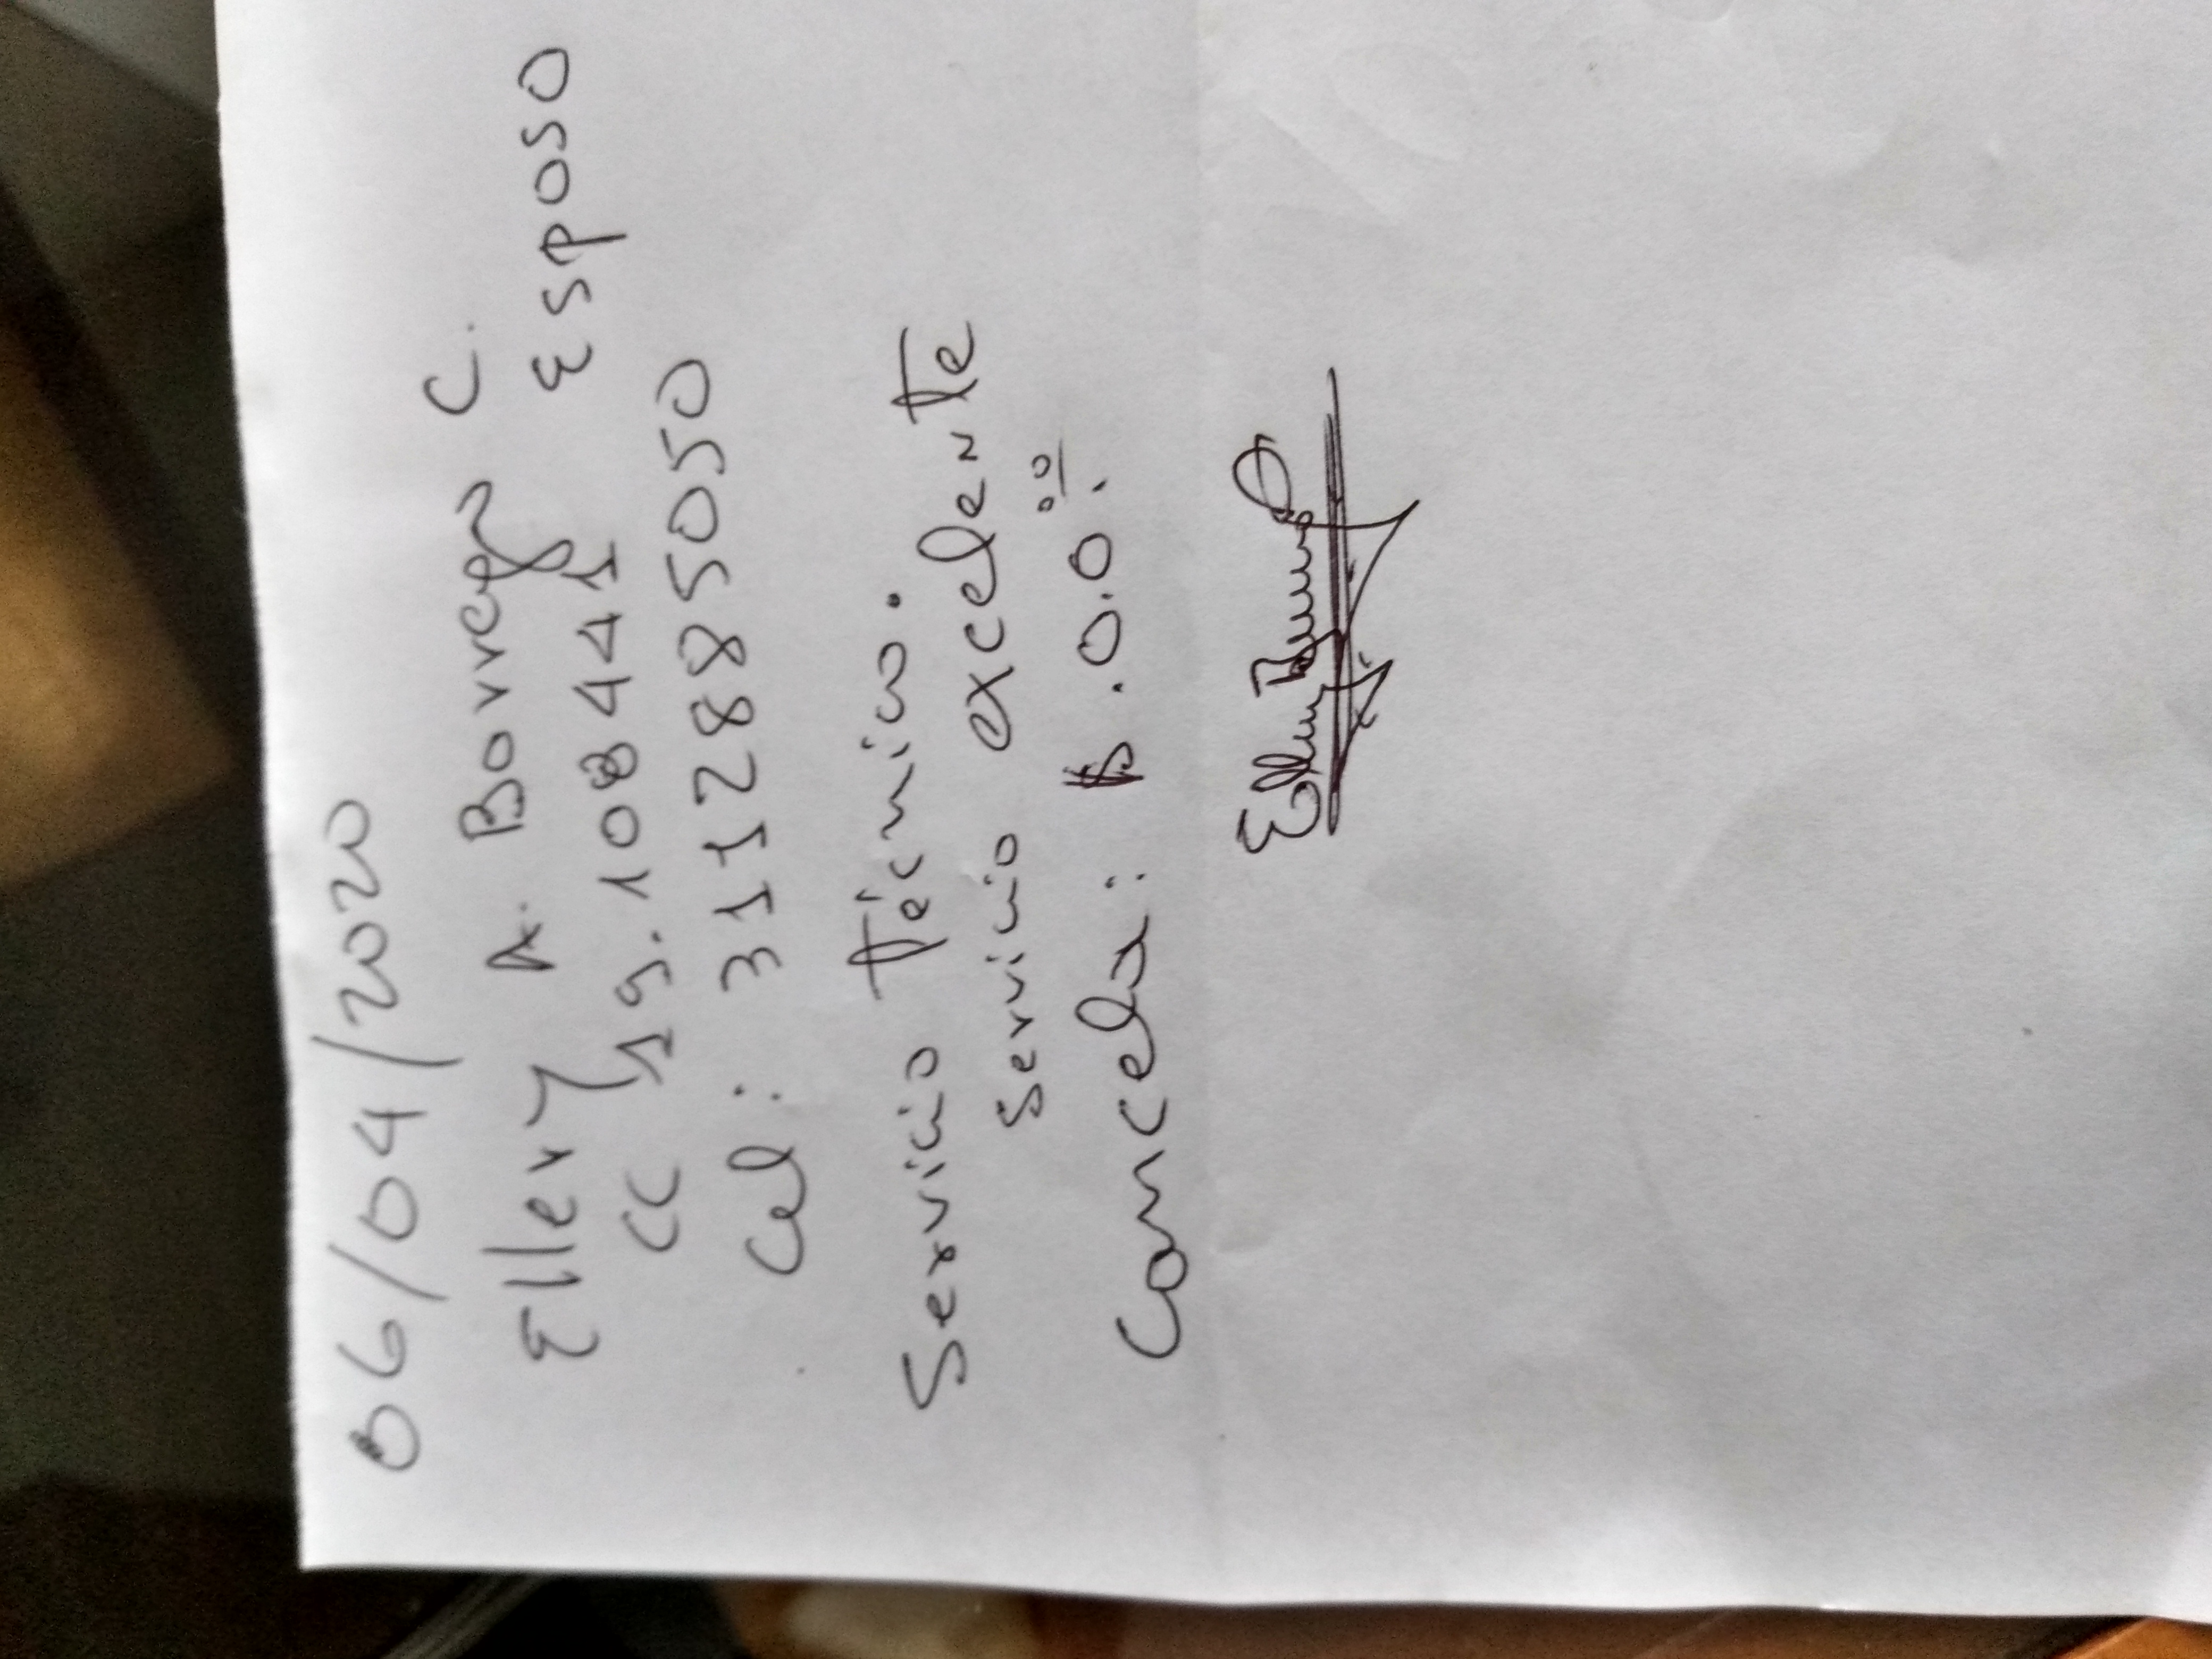 06/04/2020
Ellery A. Borrego C.
CC 19.108441 Esposo
Cel: 3112885050
Servicio Técnico.
Servicio excelente
Cancela: $.0.00.
Ellery Borrego